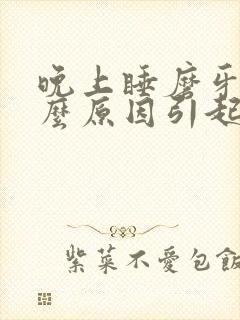 晚上睡磨牙
麼原因引起
紫菜不愛包飯